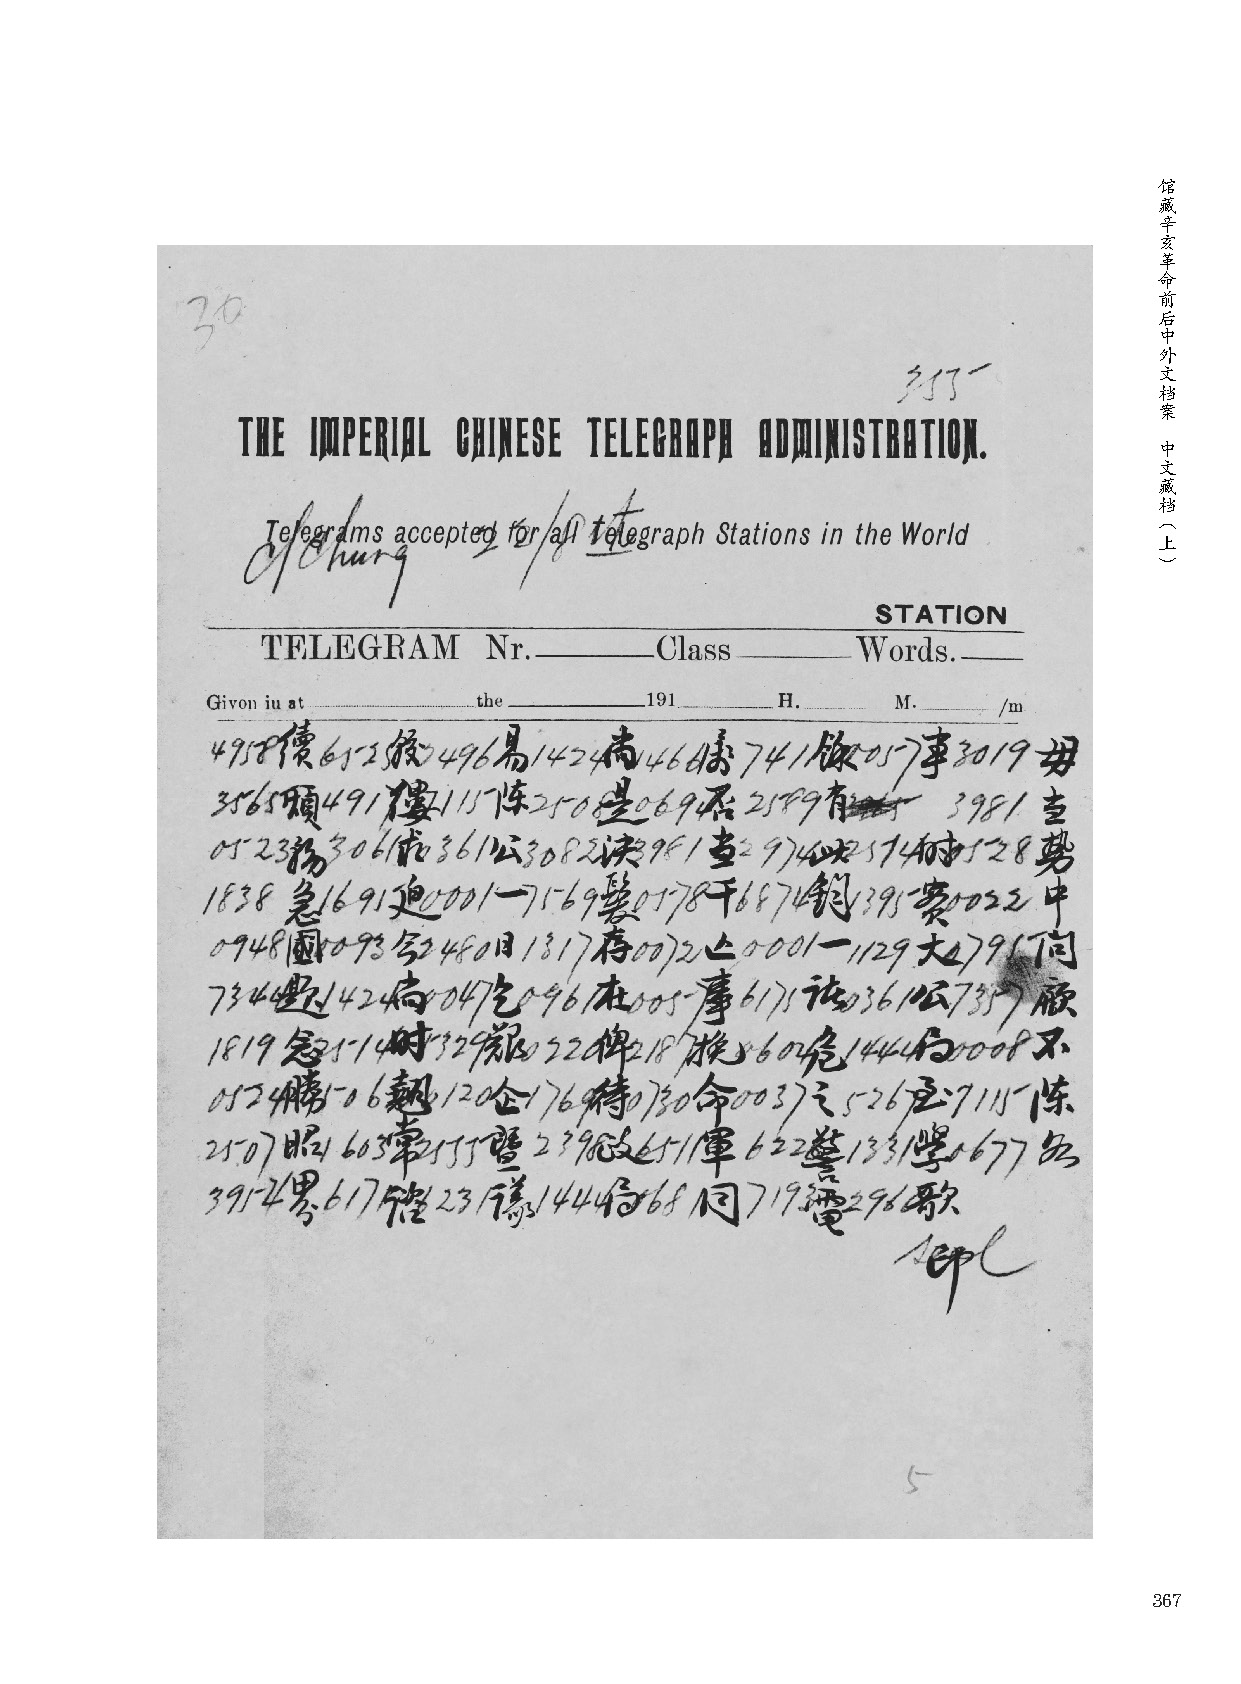 30
355
THE IMPERIAL CHINESE TELEGRAPH ADMINISTRATION.
Telegrams accepted for all Telegraph Stations in the World
STATION
TELEGRAM Nr. Class Words.
Givon iu at the 191 H. M. /m
4958價6525 2496易1424尚1466 7411 0057事3019毋
3565須4917 7115陈2508是0694否2589有 3981當
0523務3061求0361公3082決3981當2974此2514时0528勢
1838急1691迫0001一7569髮0578千6874鈞1395 0022中
0948國0093今2480日1317存0072亡0001一1129大0795問
7344題1424尚0047乞0961在0057事6175諸0361公7357顧
1819念2514时5329艱0220俾2187挽0604危1444局0008不
0524勝5063翹0120企1769待0730命0037之5267至7115陈
2507昭1603常2555暨2398政6511軍6226警1331學0677各
3954界6175諸6231議1444局0681同7193電2966歌
印
5
馆藏辛亥革命前后中外文档案 中文藏档(上)
367